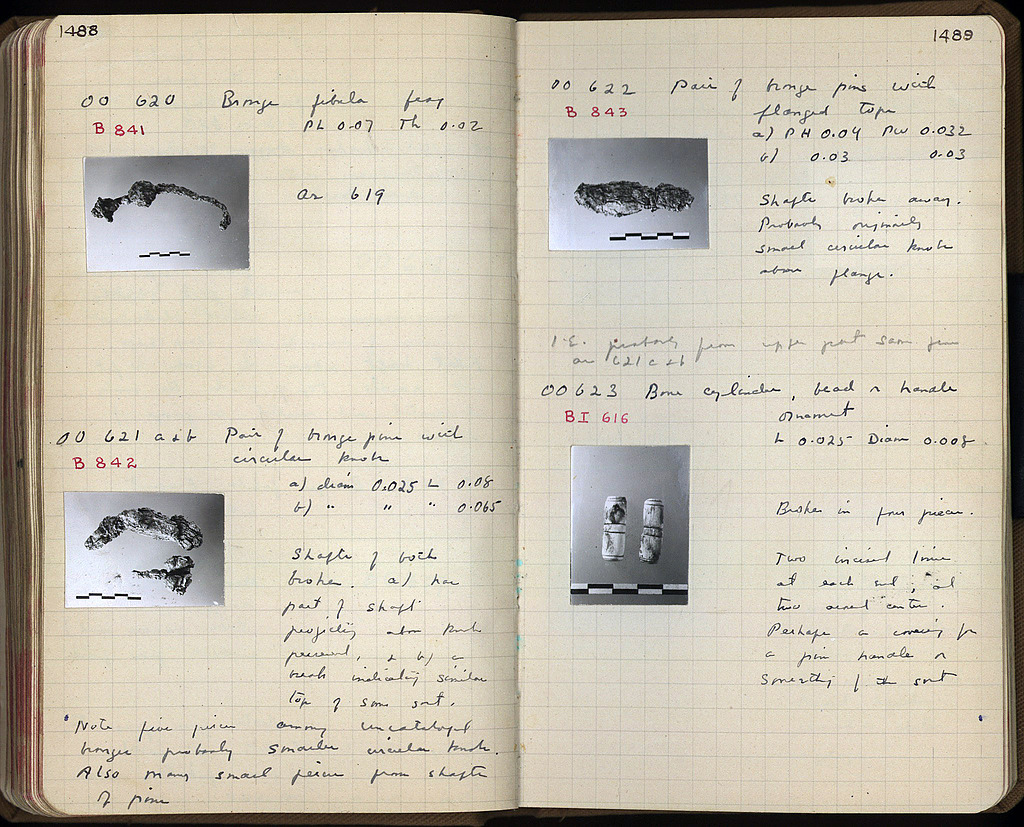 1488
OO 620 Bronze fibula frag
B 841
PL 0.07 Th 0.02
as 619
OO 621 a & b Pair of bronze pins with
B 842
circular knob
a) diam 0.025 L 0.08
b) " " " 0.065
Shafts of both
broken. a) has
part of shaft
projecting above knob
preserved, & b) a
break indicating similar
top of some sort.
Note five pieces among uncataloged
bronzes probably smaller circular knobs.
Also many small pieces from shafts
of pins
1489
OO 622 Pair of bronze pins with
B 843
flanged tops
a) PH 0.04 PW 0.032
b) 0.03 0.03
Shafts broken away.
Probably originally
small circular knob
above flange.
I.E. probably from upper part same pins
as 621 a & b
OO 623 Bone cylinder, bead or handle
BI 616
ornament
L 0.025 Diam 0.008
Broken in four pieces.
Two incised lines
at each end, and
two around center.
Perhaps a covering for
a pin handle or
something of the sort